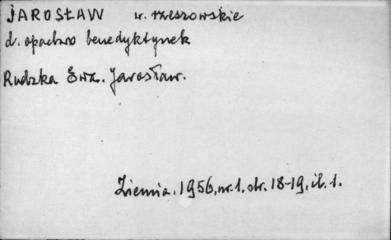 JAROSŁAW w. rzeszowskie
d. opactwo benedyktynek
Rudzka Ewa. Jarosław.
Ziemia. 1956, nr. 1, str. 18-19, il. 1.